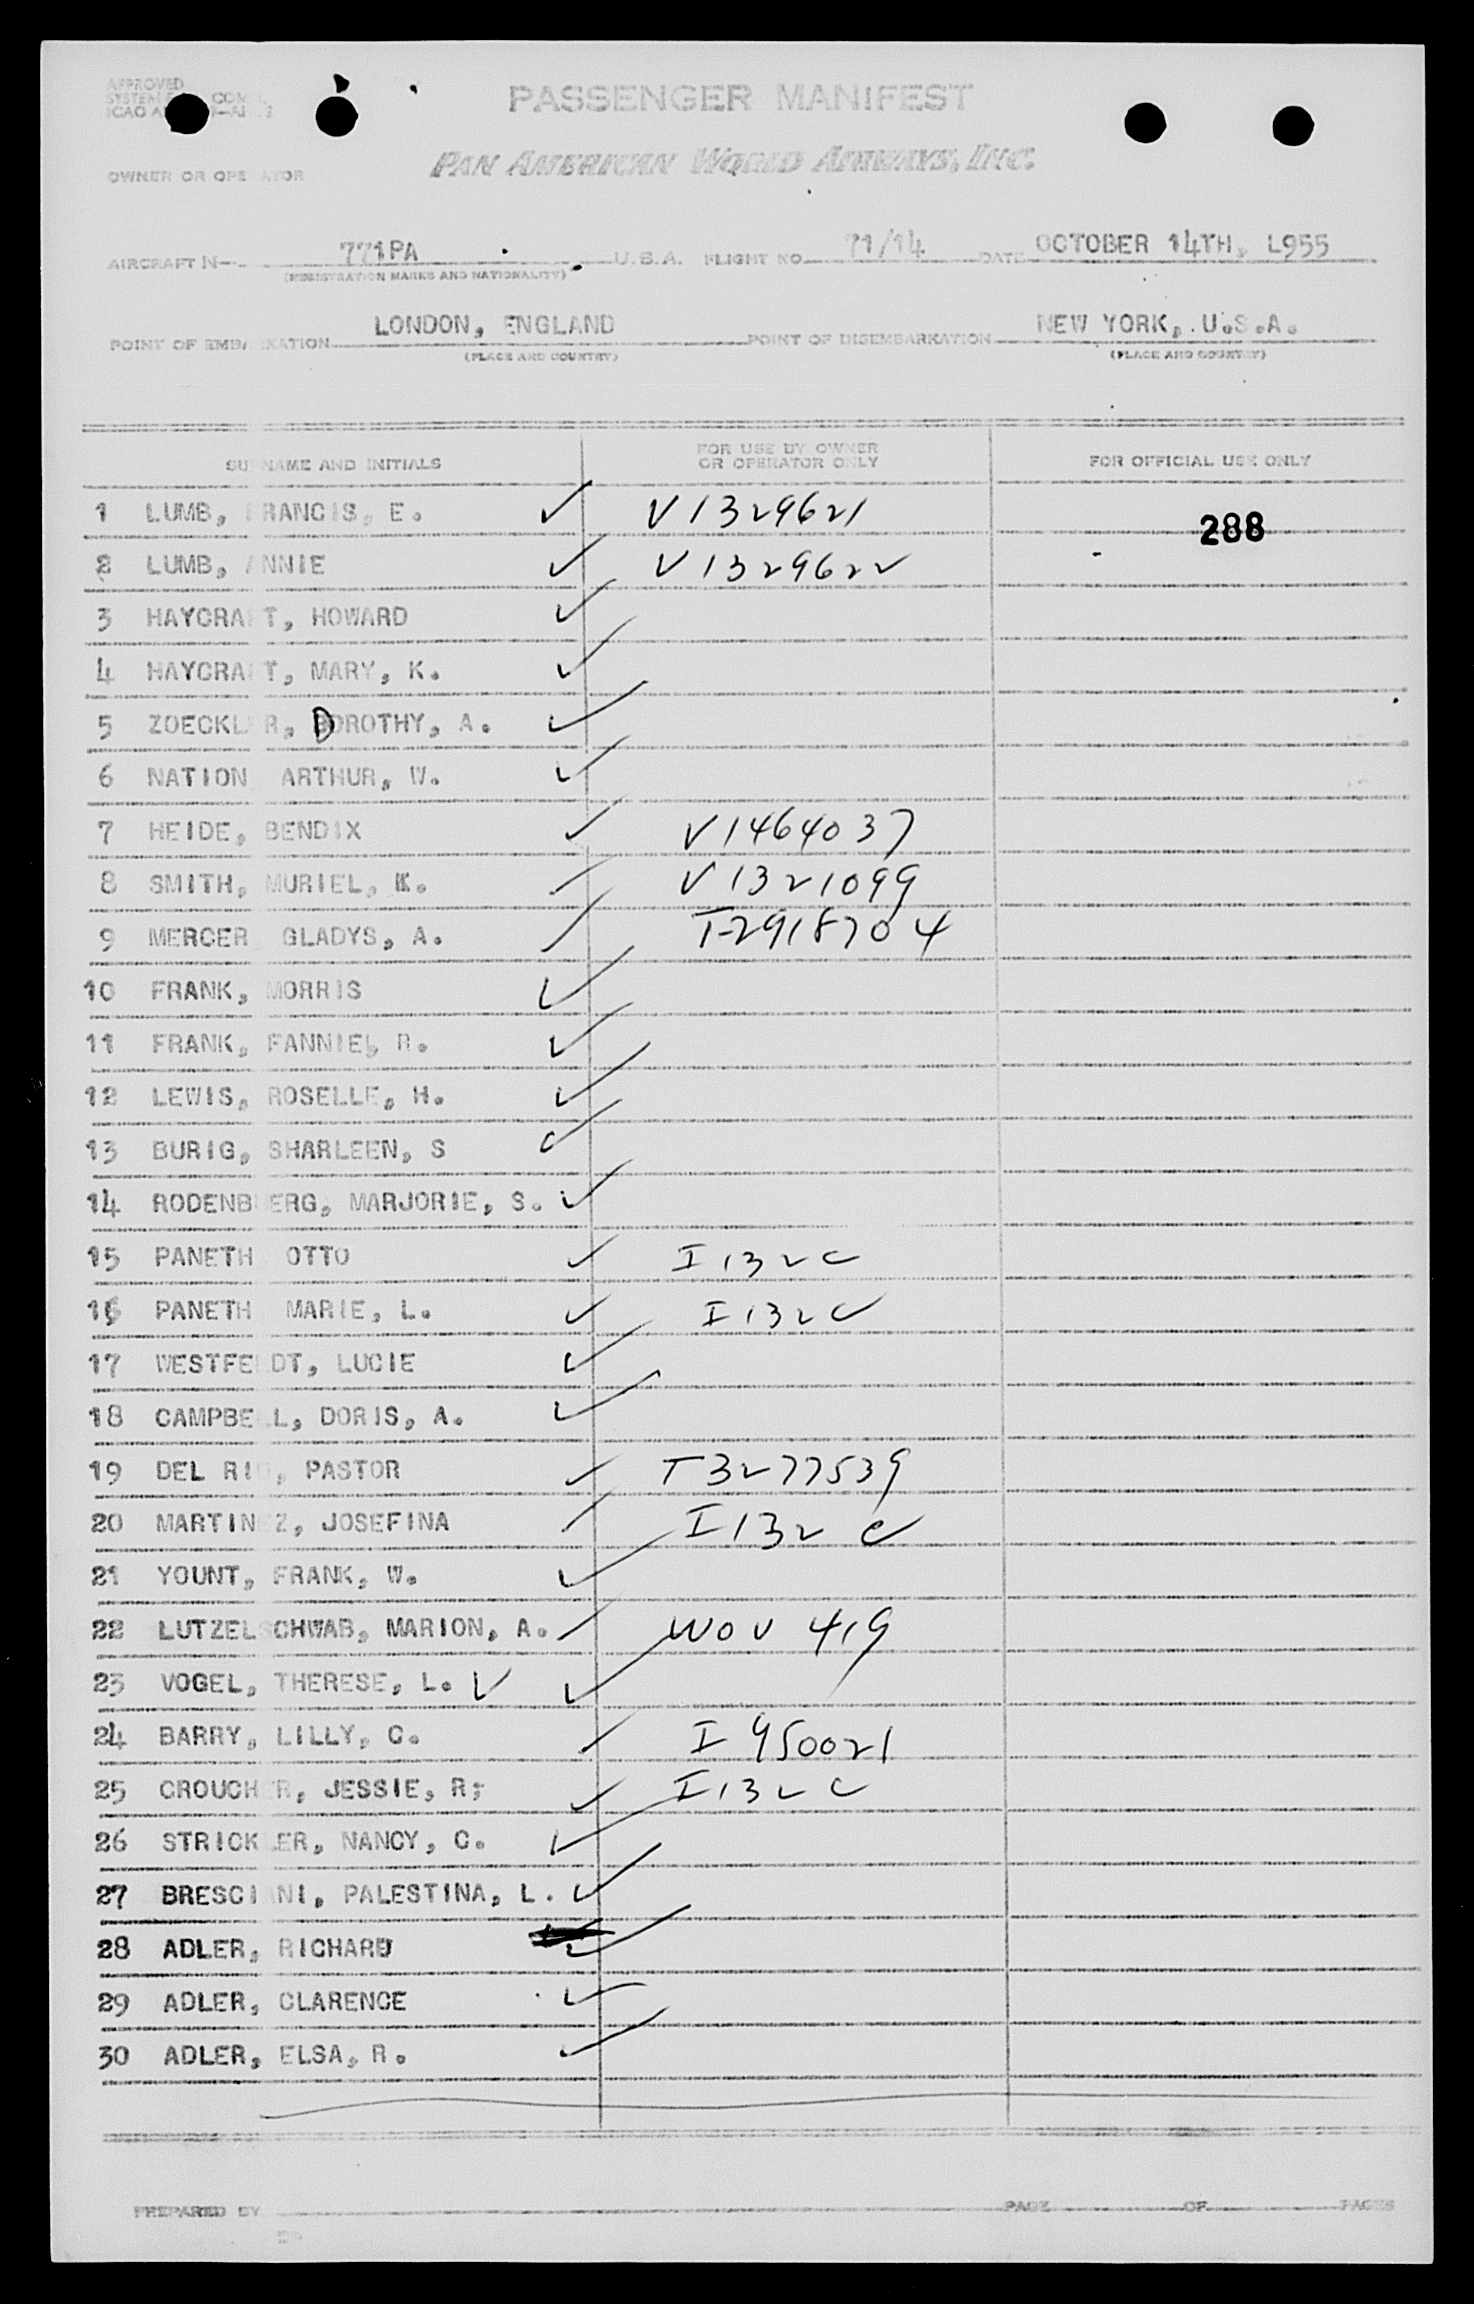 APPROVED
PASSENGER MANIFEST
PAN AMERICAN WORLD AIRWAYS, INC.
OWNER OR OPERATOR
AIRCRAFT N- 771PA U.S.A. FLIGHT NO. 71/14 DATE OCTOBER 14TH, L955
(REGISTRATION MARKS AND NATIONALITY)
POINT OF EMBARKATION LONDON, ENGLAND POINT OF DISEMBARKATION NEW YORK, U.S.A.
(PLACE AND COUNTRY) (PLACE AND COUNTRY)
SURNAME AND INITIALS FOR USE BY OWNER OR OPERATOR ONLY FOR OFFICIAL USE ONLY
1 LUMB, FRANCIS, E. ✓ V1329621 288
2 LUMB, ANNIE ✓ V1329622
3 HAYCRAFT, HOWARD ✓
4 HAYCRAFT, MARY, K. ✓
5 ZOECKLER, DOROTHY, A. ✓
6 NATION ARTHUR, W. ✓
7 HEIDE, BENDIX ✓ V1464037
8 SMITH, MURIEL, K. ✓ V1321099
9 MERCER GLADYS, A. ✓ T2918704
10 FRANK, MORRIS ✓
11 FRANK, FANNIE, R. ✓
12 LEWIS, ROSELLE, H. ✓
13 BURIG, SHARLEEN, S ✓
14 RODENBERG, MARJORIE, S. ✓
15 PANETH OTTO ✓ I132C
16 PANETH MARIE, L. ✓ I132C
17 WESTFELDT, LUCIE ✓
18 CAMPBELL, DORIS, A. ✓
19 DEL RIO, PASTOR ✓ T3277539
20 MARTINEZ, JOSEFINA ✓ I132C
21 YOUNT, FRANK, W. ✓
22 LUTZELSCHWAB, MARION, A. ✓ WOV 419
23 VOGEL, THERESE, L. ✓ ✓
24 BARRY, LILLY, C. ✓ I950021
25 CROUCHER, JESSIE, R; ✓ I132C
26 STRICKLER, NANCY, C. ✓
27 BRESCIANI, PALESTINA, L. ✓
28 ADLER, RICHARD ✓
29 ADLER, CLARENCE ✓
30 ADLER, ELSA, R. ✓
PREPARED BY PAGE OF PAGES